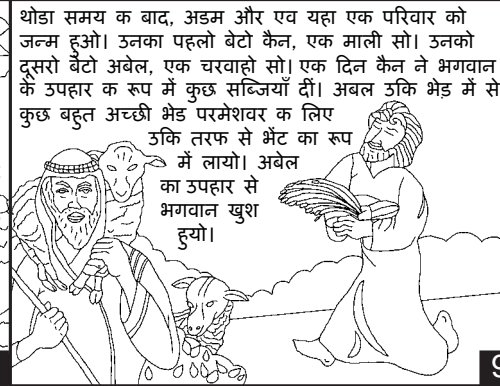 थोडा समय क बाद, अडम और एव यहा एक परिवार को
जन्म हुओ। उनका पहलो बेटो कैन, एक माली सो। उनको
दूसरो बेटो अबेल, एक चरवाहो सो। एक दिन कैन ने भगवान
के उपहार क रूप में कुछ सब्जियाँ दीं। अबल उकि भेड़ में से
कुछ बहुत अच्छी भेड परमेशवर क लिए
उकि तरफ से भेंट का रूप
में लायो। अबेल
का उपहार से
भगवान खुश
हुयो।
9